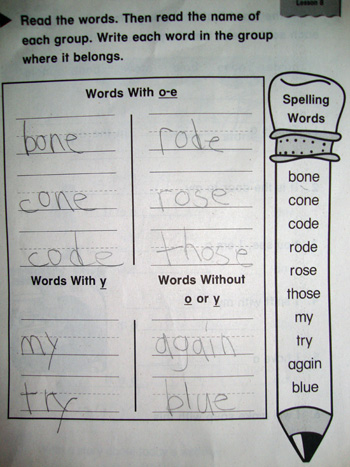 Lesson 8
Read the words. Then read the name of
each group. Write each word in the group
where it belongs.
Words With o-e
bone rode
cone rose
code those
Words With y
my
try
Words Without
o or y
again
blue
Spelling
Words
bone
cone
code
rode
rose
those
my
try
again
blue